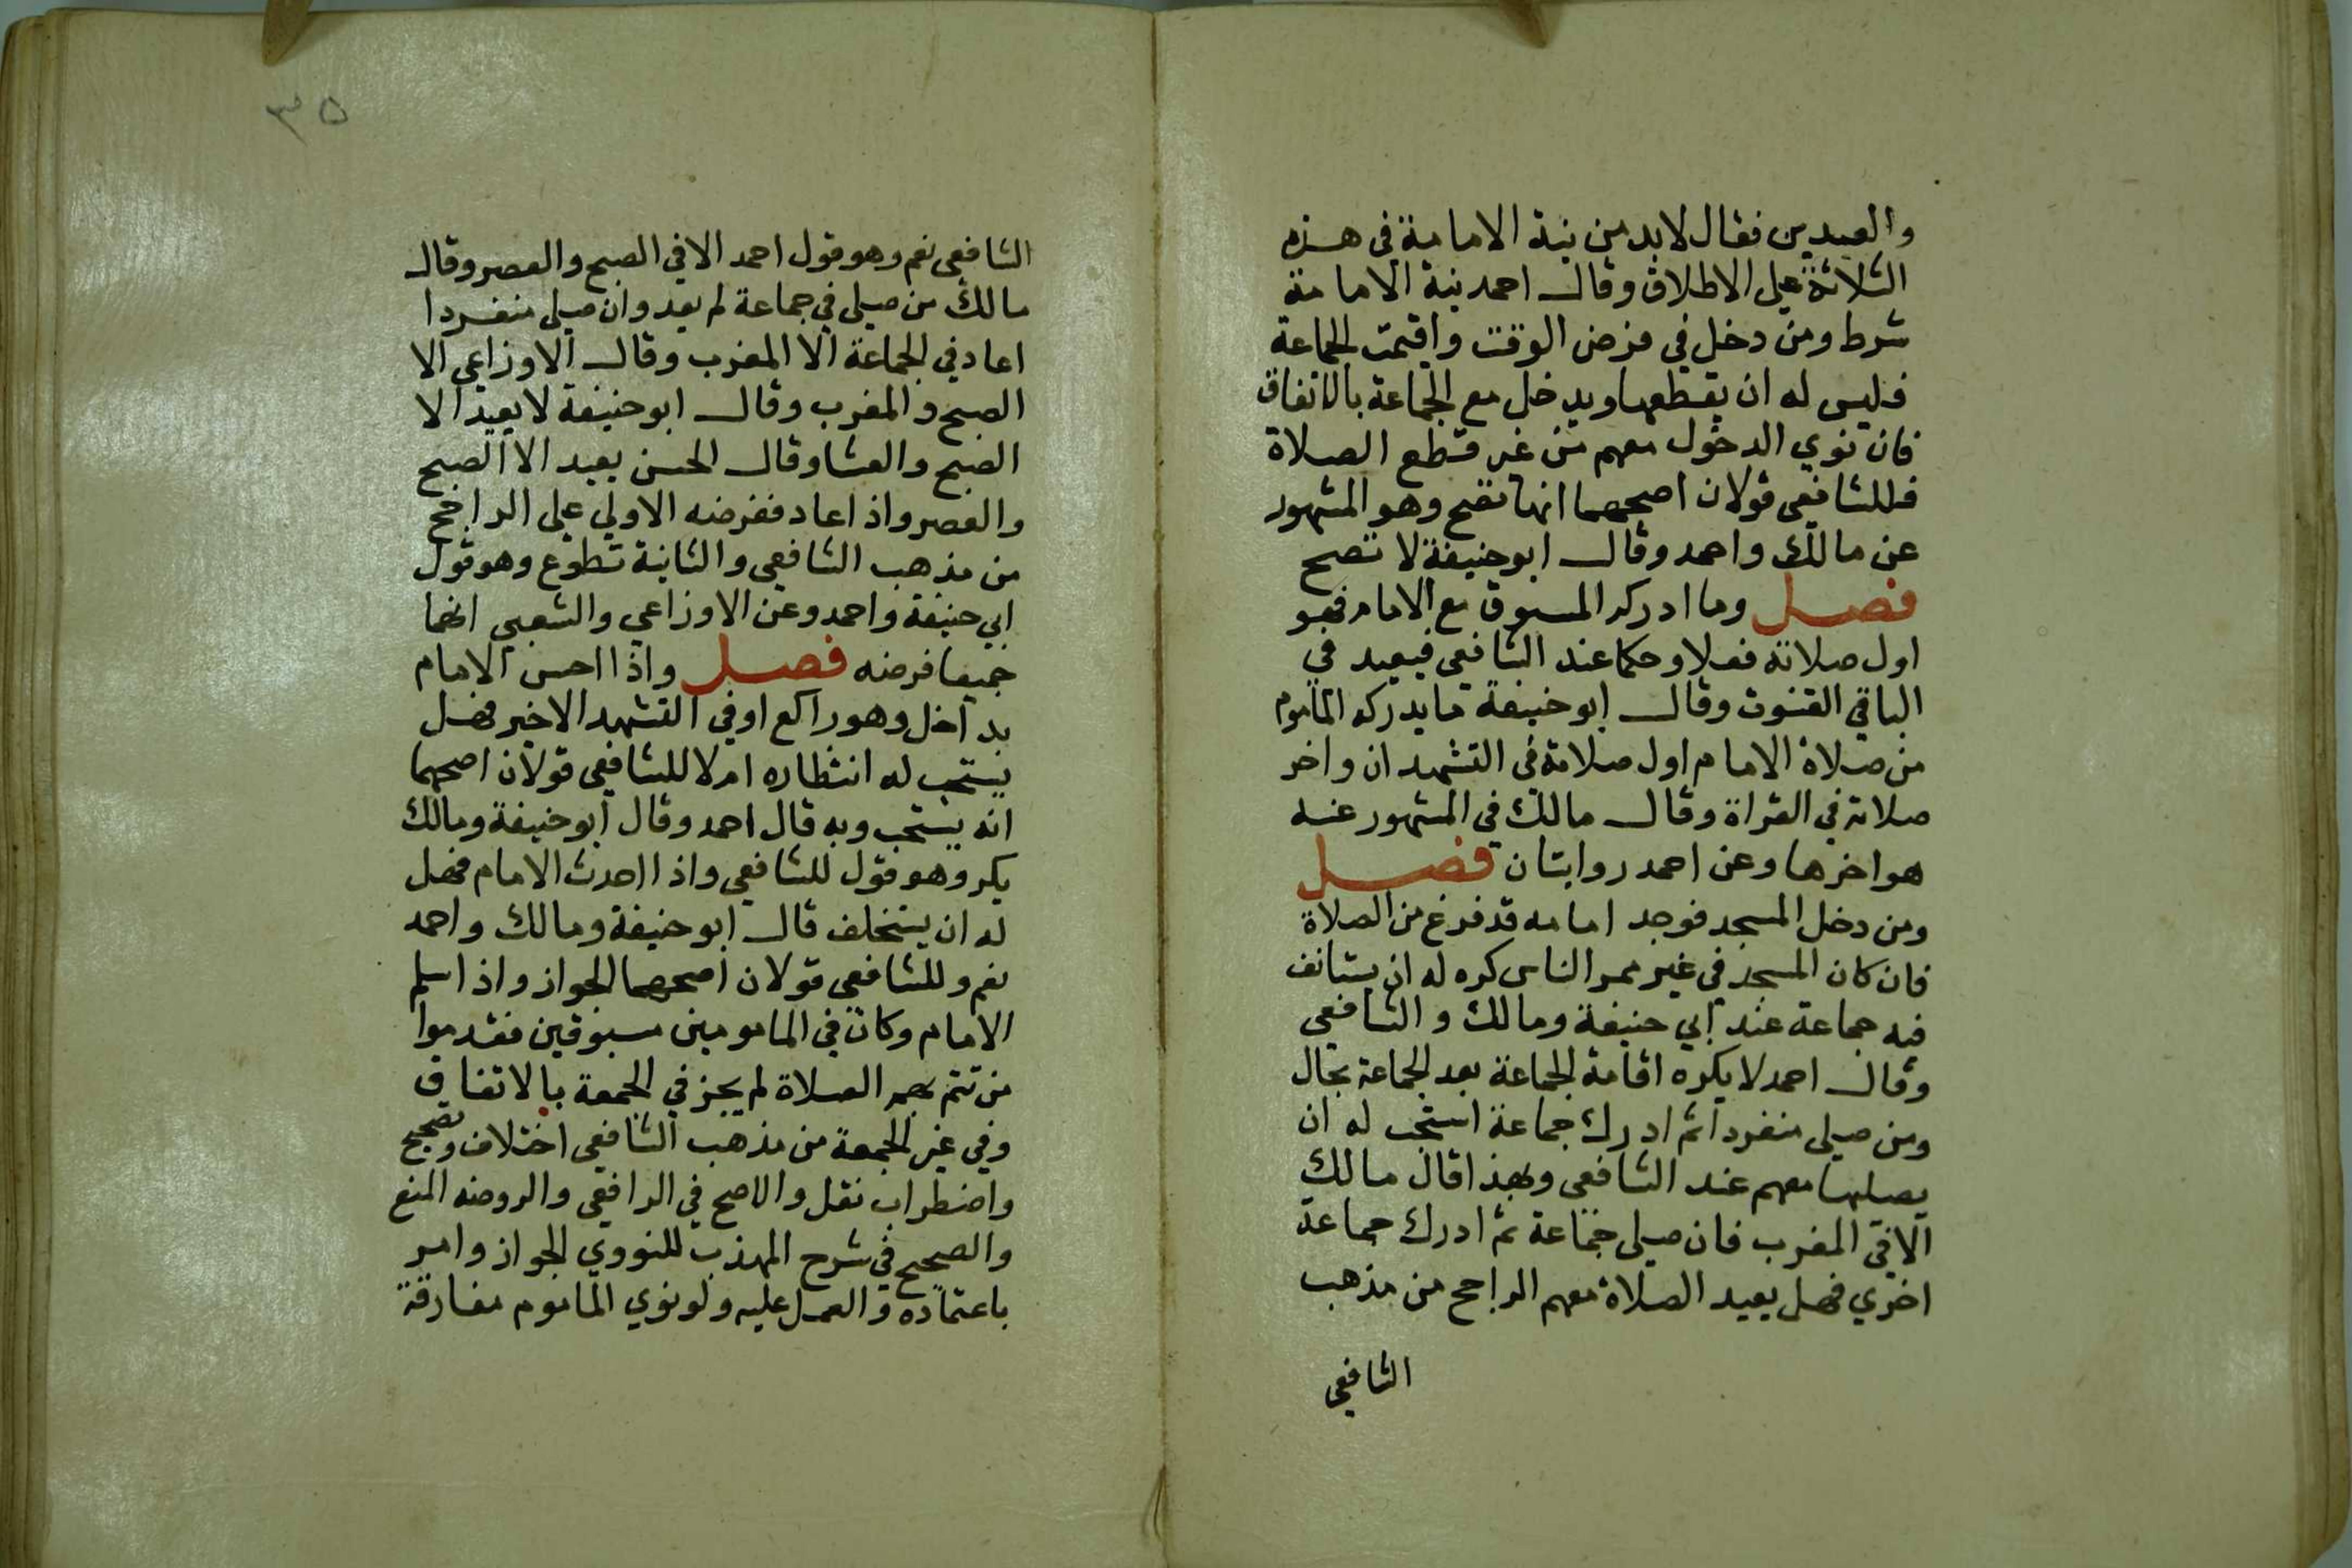 والعيدين فقال لابد من نية الامامة في هذه
الثلاثة علي الاطلاق وقال احمد نية الامامة
شرط ومن دخل في فرض الوقت واقيمت الجماعة
فليس له ان يقطعها ويدخل مع الجماعة بالاتفاق
فان نوي الدخول معهم من غير قطع الصلاة
فللشافعي قولان اصحهما انها تصح وهو المشهور
عن مالك واحمد وقال ابو حنيفة لا تصح
فصل وما ادركه المسبوق مع الامام فهو
اول صلاته فعلا وحكما عند الشافعي فيعيد في
الباقي القنوت وقال ابو حنيفة ما يدركه الماموم
من صلاة الامام اول صلاته في التشهدان واخر
صلاته في القراة وقال مالك في المشهور عنه
هو اخرها وعن احمد روايتان فصل
ومن دخل المسجد فوجد امامه قد فرغ من الصلاة
فان كان المسجد في غير ممر الناس كره له ان يستانف
فيه جماعة عند ابي حنيفة ومالك والشافعي
وقال احمد لا يكره اقامة الجماعة بعد الجماعة بحال
ومن صلي منفردا ثم ادرك جماعة استحب له ان
يصليها معهم عند الشافعي وبهذا قال مالك
الا في المغرب فان صلي جماعة ثم ادرك جماعة
اخري فهل يعيد الصلاة معهم الراجح من مذهب
الشافعي
٣٥
الشافعي نعم وهو قول احمد الا في الصبح والعصر وقال
مالك من صلي في جماعة لم يعد وان صلي منفردا
اعاد في الجماعة الا المغرب وقال الاوزاعي الا
الصبح والمغرب وقال ابو حنيفة لا يعيد الا
الصبح والعشا وقال الحسن يعيد الا الصبح
والعصر واذ اعاد ففرضه الاولي علي الراجح
من مذهب الشافعي والثانية تطوع وهو قول
ابي حنيفة واحمد وعن الاوزاعي والشعبي انهما
جميعا فرضه فصل واذا احس الامام
بداخل وهو راكع او في التشهد الاخير فهل
يستحب له انتظاره ام لا للشافعي قولان اصحهما
انه يستحب وبه قال احمد وقال ابو حنيفة ومالك
يكره وهو قول للشافعي واذا احدث الامام فهل
له ان يستخلف قال ابو حنيفة ومالك واحمد
نعم وللشافعي قولان اصحهما الجواز واذا سلم
الامام وكان في المامومين مسبوقين فقدموا
من تتم بهم الصلاة لم يجز في الجمعة بالاتفاق
وفي غير الجمعة من مذهب الشافعي اختلاف وتصحيح
واضطراب نقل والاصح في الرافعي والروضه المنع
والصحيح في شرح المهذب للنووي الجواز وامر
باعتماده والعمل عليه ولو نوي الماموم مفارقة